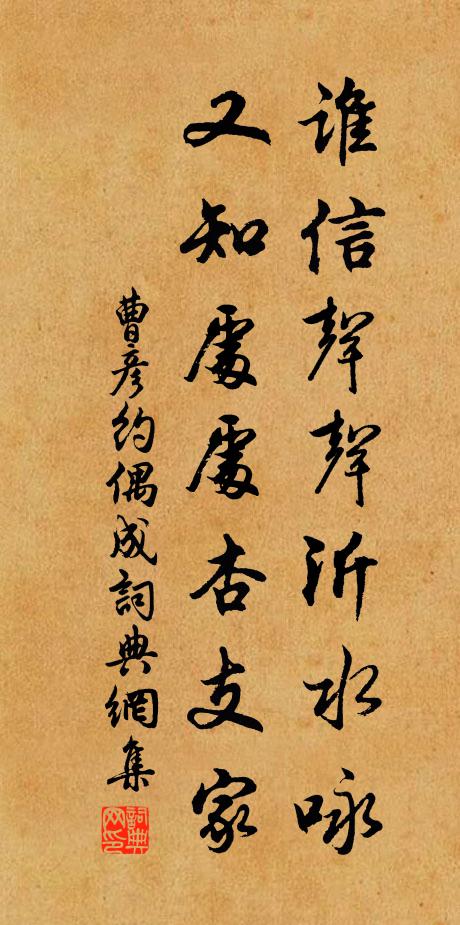 誰信聲聲沂水咏
又知處處杏支家
曹彥約偶成詞典網集
詞典网印